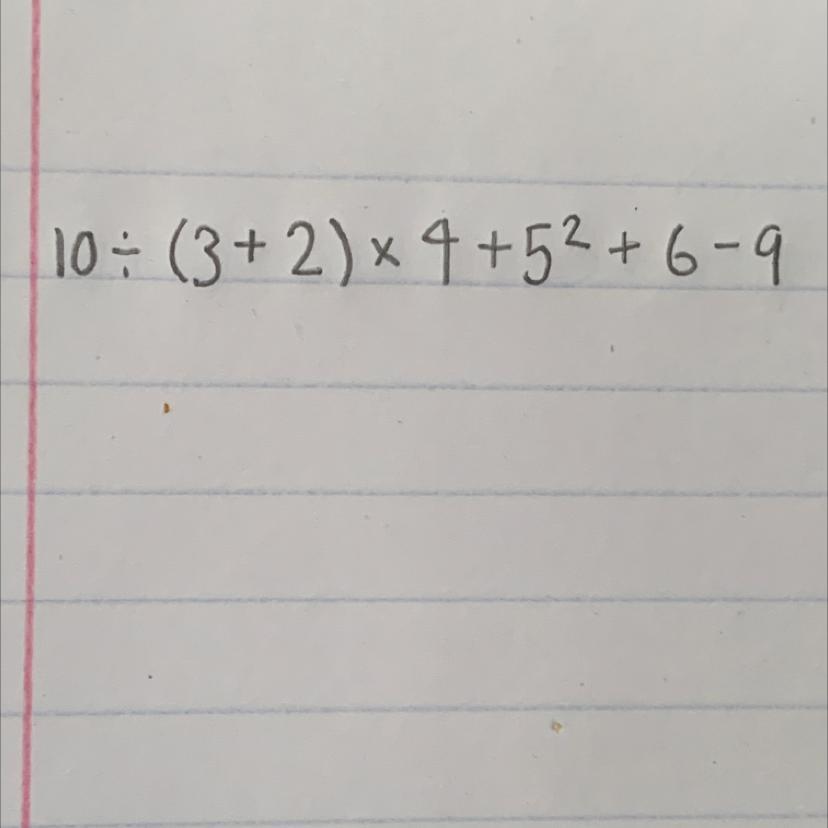 10 ÷ (3 + 2) × 4 + 5² + 6 - 9